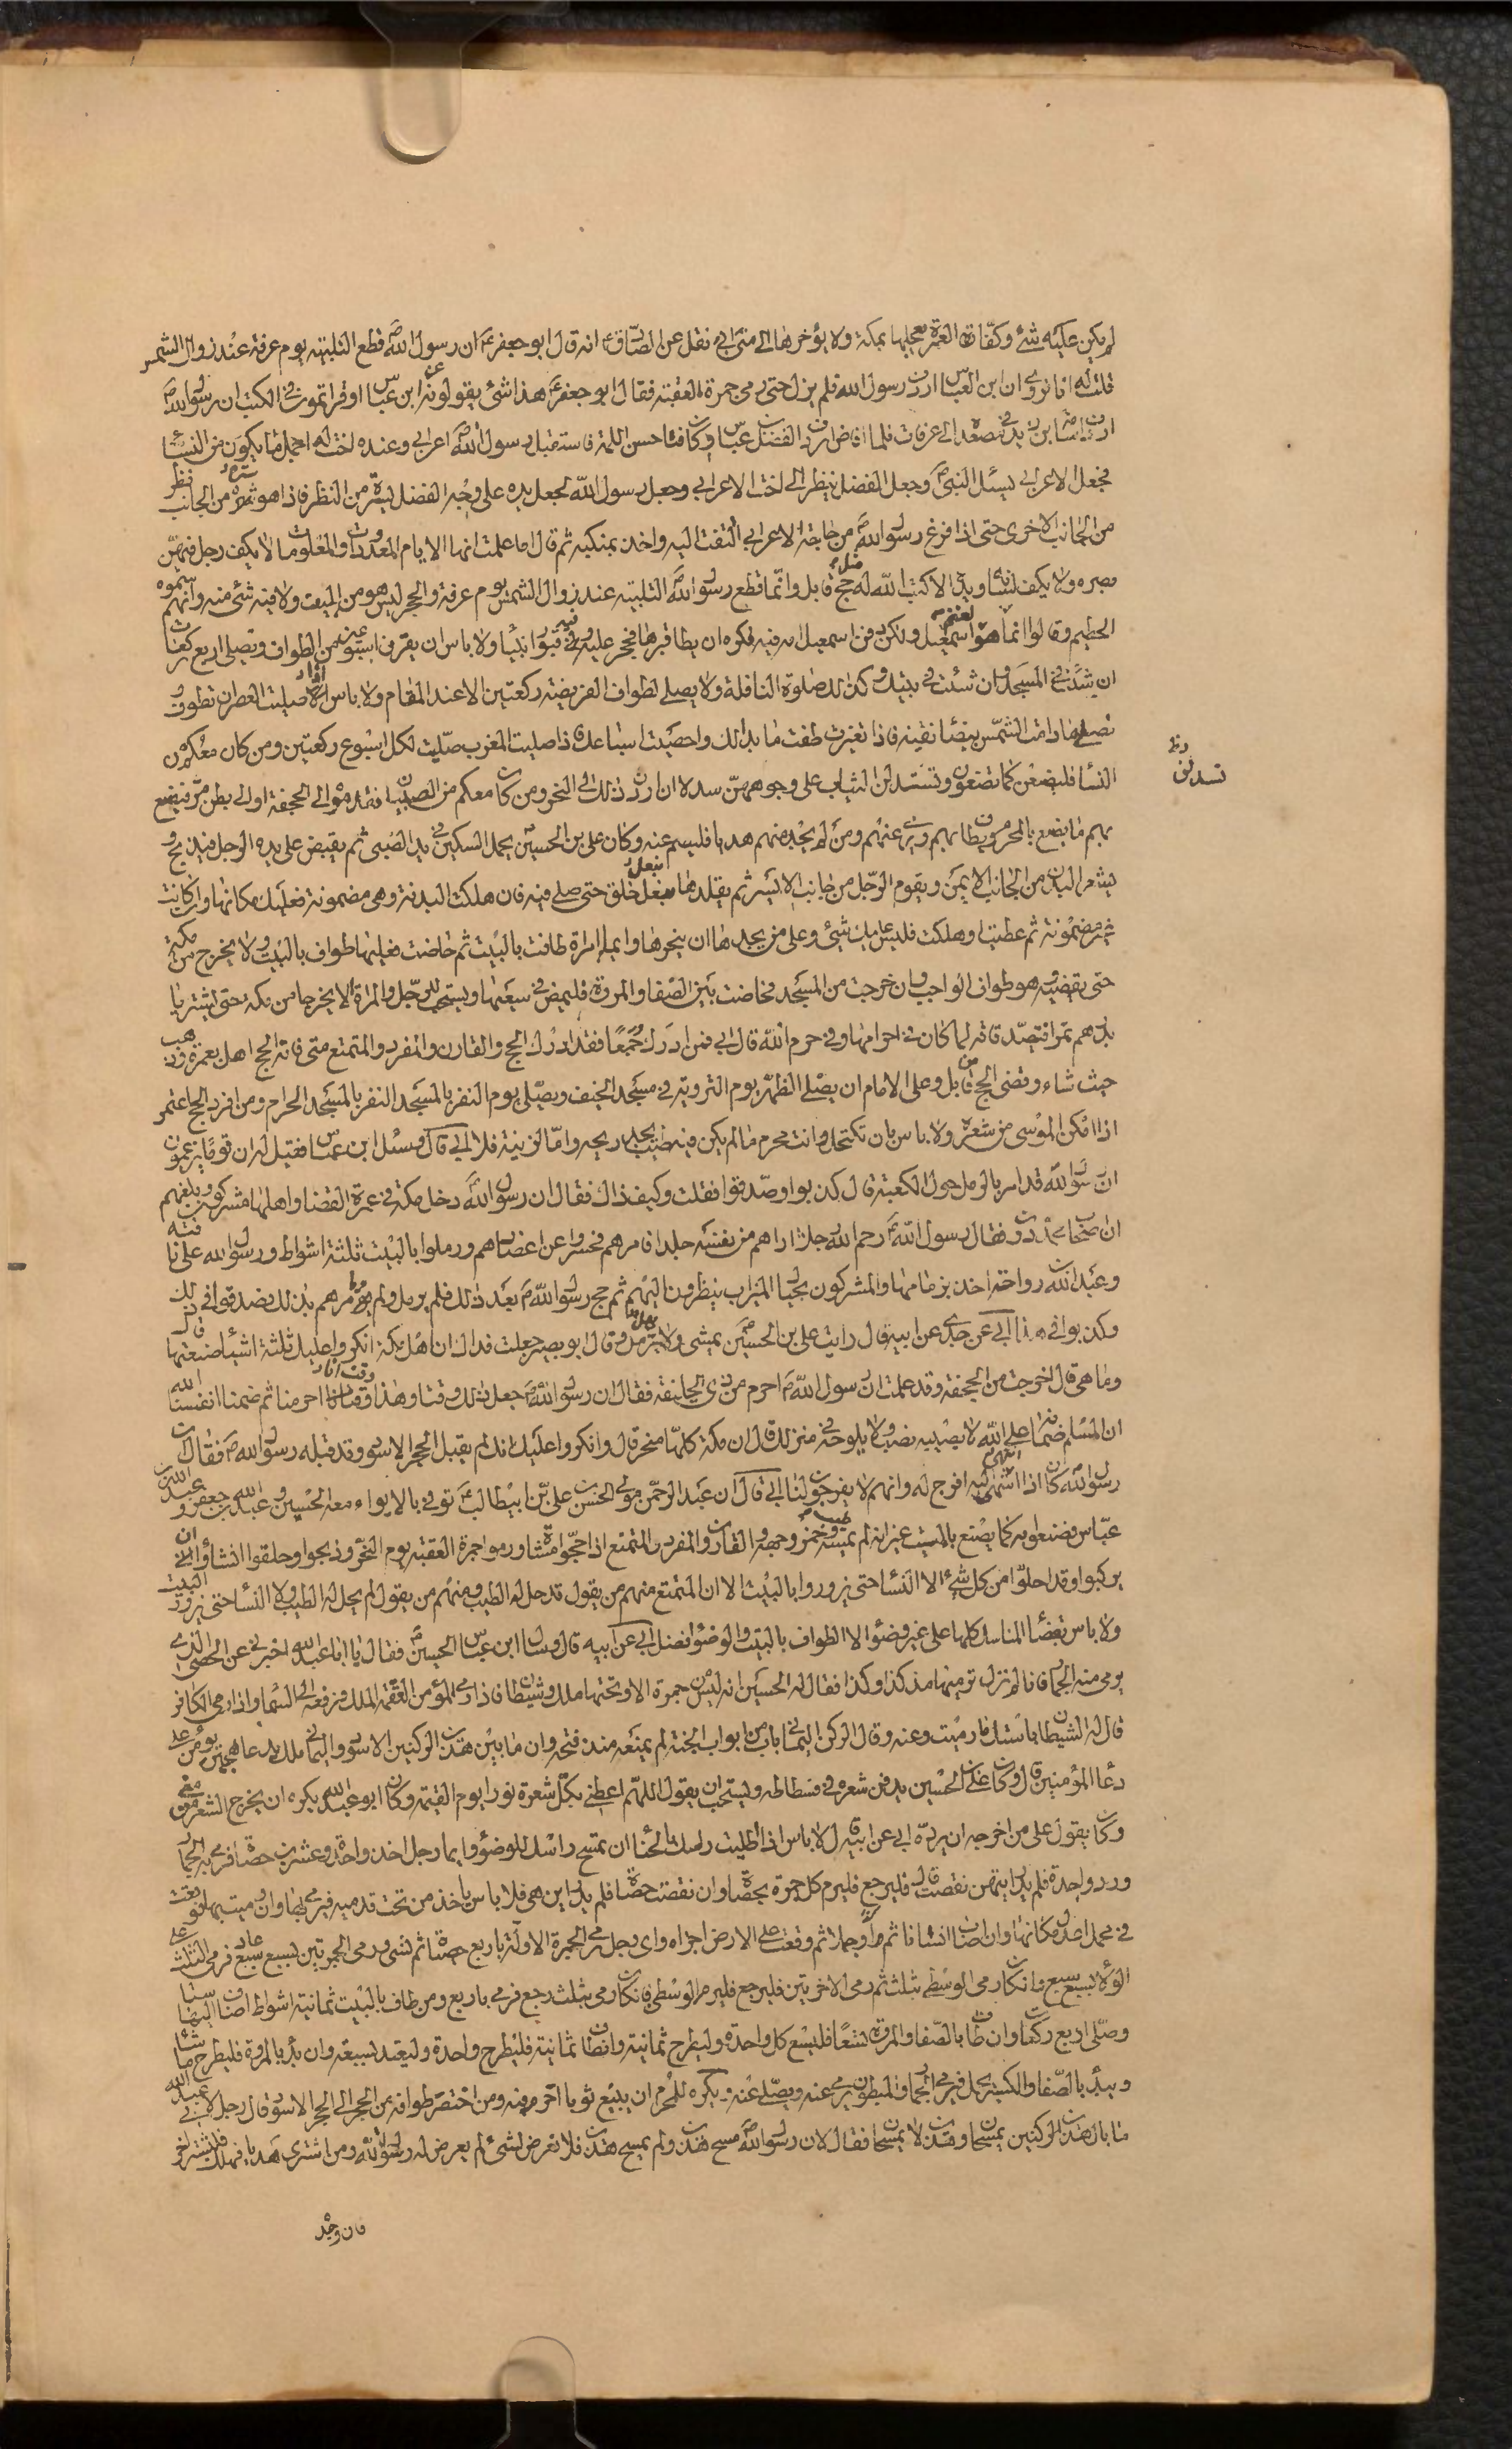 لم يكن عليه شئ وكفارة العمرة يعجلها بمكة ولا يؤخرها الى منى ابى نقل عن الصادق ع انه قال ابو جعفر ع ان رسول الله ص قطع التلبية يوم عرفة عند زوال الشمس
قلت له انا نروى ان ابن العباس اردف رسول الله فلم يزل حتى رمى جمرة العقبة فقال ابو جعفر ع هذا شئ يقولونه عن ابن عباس او قراتموه فى الكتب ان رسول الله ص
اردف اسامة بن زيد فى مصعده الى عرفات فلما افاض اردف الفضل بن عباس وكان فتى حسن اللمة فاستقبل رسول الله ص اعرابى وعنده اخت له اجمل ما يكون من النساء
فجعل الاعرابى يسئل النبى ص وجعل الفضل ينظر الى اخت الاعرابى وجعل رسول الله يجعل يده على وجه الفضل يستره من النظر فاذا هو ستره من الجانب نظر
من الجانب الاخرى حتى اذا فرغ رسول الله ص من حاجة الاعرابى التفت اليه واخذ بمنكبه ثم قال اما علمت انها الايام المعدودات والمعلومات لا يكف رجل فيهن
بصره ولا يكف لسانه ويده الا كتب الله له مثل حج قابل وانما قطع رسول الله ص التلبية عند زوال الشمس يوم عرفة والحجر ليس هو من البيت ولا فيه شئ منه وانهم سموه
الحطيم وقالوا انما هو لغنم اسمعيل ولكن دفن اسمعيل امه فيه فكره ان يطا قبرها فحجر عليه وفيه قبور انبياء ولا باس ان يقرن اسبوعين من الطواف وتصلى اربع ركعات
ان شئت فى المسجد وان شئت فى بيتك وكذلك صلوة النافلة ولا يصلى لطواف الفريضة ركعتين الا عند المقام ولا باس اذا صليت العصر ان تطوف
تصلى ما دامت الشمس بيضاء نقية فاذا تغيرت طفت ما بدا لك واحصيت اسباعك فاذا صليت المغرب صليت لكل اسبوع ركعتين ومن كان معكم من
النساء فليصنعن كما تصنعون وتستدلن الثياب على وجوههن سدلا ان اردن ذلك الى النحر ومن كان معكم من الصبيان فقدموه الى الجحفة او الى بطن مر فيصنع
دظ
تسدلن
بهم ما يصنع بالمحرم ويطاف بهم ويرمى عنهم ومن لم يجد منهم هديا فليصم عنه وكان على بن الحسين ع يحمل السكين فى يد الصبى ثم يقبض على يده الرجل فيذبح و
يشعر البدن من الجانب الايمن ويقوم الرجل من جانب الايسر ثم يقلدها بنعل خلق حتى صلى فيه فان هلكت البدنة وهى مضمونة فعليك مكانها وان كانت
غير مضمونة ثم عطبت او هلكت فليس عليك شئ وعلى من يجدها ان ينحرها وايما امراة طافت بالبيت ثم حاضت فعليها طواف بالبيت ولا يخرج من مكة
حتى يقضيه وهو طواف الواجب وان خرجت من المسجد فحاضت بين الصفا والمروة فليمض فى سعيها ويستحب للرجل والمراة الا يخرجا من مكة حتى يشتريا
بدرهم تمرا فتصدقا به لما كان فى احرامها وفى حرم الله قال ابى فمن ادرك جمعا فقد ادرك الحج والقارن والمفرد والمتمتع متى فاته الحج اهل بعمرة وذهب
حيث شاء وقضى الحج من قابل وعلى الامام ان يصلى الظهر يوم التروية فى مسجد الخيف ويصلى يوم النفر بالمسجد النفر بالمسجد الحرام ومن افرد الحج اعتمر
اذا امكن الموسى من شعره ولا باس بان تكتحل وانت محرم ما لم يكن فيه طيب يجد ريحه واما لزينة فلا ابى قال وسئل ابن عباس فقيل له ان قوما يزعمون
ان رسول الله قد امر بالرمل حول الكعبة قال كذبوا وصدقوا فقلت وكيف ذاك فقال ان رسول الله ص دخل مكة فى عمرة القضاء واهلها مشركون وبلغهم
ان اصحاب محمد مجهودون فقال رسول الله ص رحم الله رجلا اراهم من نفسه جلدا فامرهم فحسروا عن اعضادهم ورملوا بالبيت ثلثة اشواط ورسول الله على ناقته
وعبد الله رواحة اخذ بزمامها والمشركون بحيال الميزاب ينظرون اليهم ثم حج رسول الله ص بعد ذلك فلم يرمل ولم يامرهم بذلك فصدقوا فى ذلك
وكذبوا فى هذا ابى عن جدى عن ابيه قال رايت على بن الحسين ع يمشى ولا يرمل وقال ابو بصير جعلت فداك ان اهل مكة انكروا عليك ثلثة اشياء صنعتها قال
وما هى قال اخرجت من الجحفة وقد علمت ان رسول الله ص احرم من ذى الحليفة فقال ان رسول الله ص جعل ذلك وقتا وهذا وقت فان احرمنا ثم ضمنا انفسنا الله
ان المسلم ضمانه على الله لا يصيبه نصب ولا يلوحه فى منزلك قال ان مكة كلها منحر قال وانكروا عليك انك لم يقبل الحجر الاسود وقد قبله رسول الله ص فقال ان
رسول الله كان اذا انتهى اليه افرج له وانهم لا يفرجون لنا ابى قال ان عبد الرحمن مولى الحسن بن على بن ابيطالب ع توفى بالابواء معه الحسين وعبد الله بن جعفر وعبد الله بن
عباس فصنعوا به كما يصنع بالميت غير انه لم يمسه طيب وخمر وجهه والقارن والمفرد والمتمتع اذا حجوا مشاة ورموا جمرة العقبة يوم النحر وذبحوا وحلقوا انشاؤا ان
يركبوا وقد احلوا من كل شئ الا النساء حتى يزوروا بالبيت الا ان المتمتع منهم من يقول قد حل له الطيب ومنهم من يقول لم يحل له الطيب ولا النساء حتى يزور البيت
ولا باس بقضاء المناسك كلها على غير وضوء الا الطواف بالبيت والوضوء افضل ابى عن ابيه قال وسال ابن عباس الحسين ع فقال يا ابا عبد الله اخبرنى عن الحصى الذى
يرمى منه الجمار فانا لم نزل نرميها منذ كذا وكذا فقال له الحسين انه ليس من جمرة الا وتحتها ملك وشيطان فاذا رمى المؤمن التقمه الملك فرفعه الى السماء واذا رمى الكافر
قال له الشيطان باستك ما رميت وعنه وقال الركن اليمانى باب من ابواب الجنة لم يمنعه منذ فتحه وان ما بين هذين الركنين الاسود واليمانى ملك يدعا هجير يؤمن على
دعاء المؤمنين قال وكان على بن الحسين يدفن شعره فى فسطاطه ويستحب ان يقول اللهم اعطنى بكل شعرة نورا يوم القيمة وكان ابو عبد الله يكره ان يخرج الشعر من منى
وكان يقول على من اخرجه ان يرده ابى عن ابيه قال لا باس اذا طليت راسك بالحناء ان تمسح راسك للوضوء وايما رجل اخذ واحدة وعشرين حصاة فرمى به الجمار
ورد واحدة فلم يدر ايتهن نقصت قال فليرجع فليرم كل جمرة بحصاة وان نقصت حصاة فلم يدر اين هى فلا باس ان ياخذ من تحت قدميه فيرمى بها وان رميت بها فوقعت
فى محمل اعد مكانها وان اصاب انسانا ثم او جملا ثم وقعت على الارض اجزاه واى رجل رمى الجمرة الاولى باربع حصاة ثم نسى ورمى الجمرتين بسبع سبع عاد فرمى الثلث على
الولاء بسبع سبع فان كان رمى الوسطى بثلث ثم رمى الاخرتين فليرجع فليرم الوسطى فان كان رمى بثلث رجع فرمى باربع ومن طاف بالبيت ثمانية اشواط اضاف اليها ستا
وصلى اربع ركعات وان طاف بالصفا والمروة تسعا فليسع كل واحدة وليطرح ثمانية وان طاف ثمانية فليطرح واحدة وليعتد بسبعة وان بدأ بالمروة فليطرح ما شاء
ويبدأ بالصفا والكسير يحمل فيرمى الجمار والمبطون يرمى عنه ويصلى عنه ويكره للمحرم ان يبيع ثوبا احرم فيه ومن اختصر طوافه من الحجر الى الحجر الاسود قال رجل لابى عبد الله
ما بال هذين الركنين يمسحان وهذين لا يمسحان فقال لان رسول الله ص مسح هذين ولم يمسح هذين فلا تعرض لشئ لم يعرض له رسول الله ومن اشترى هديا فهلك فليشتر اخر
فان وجد